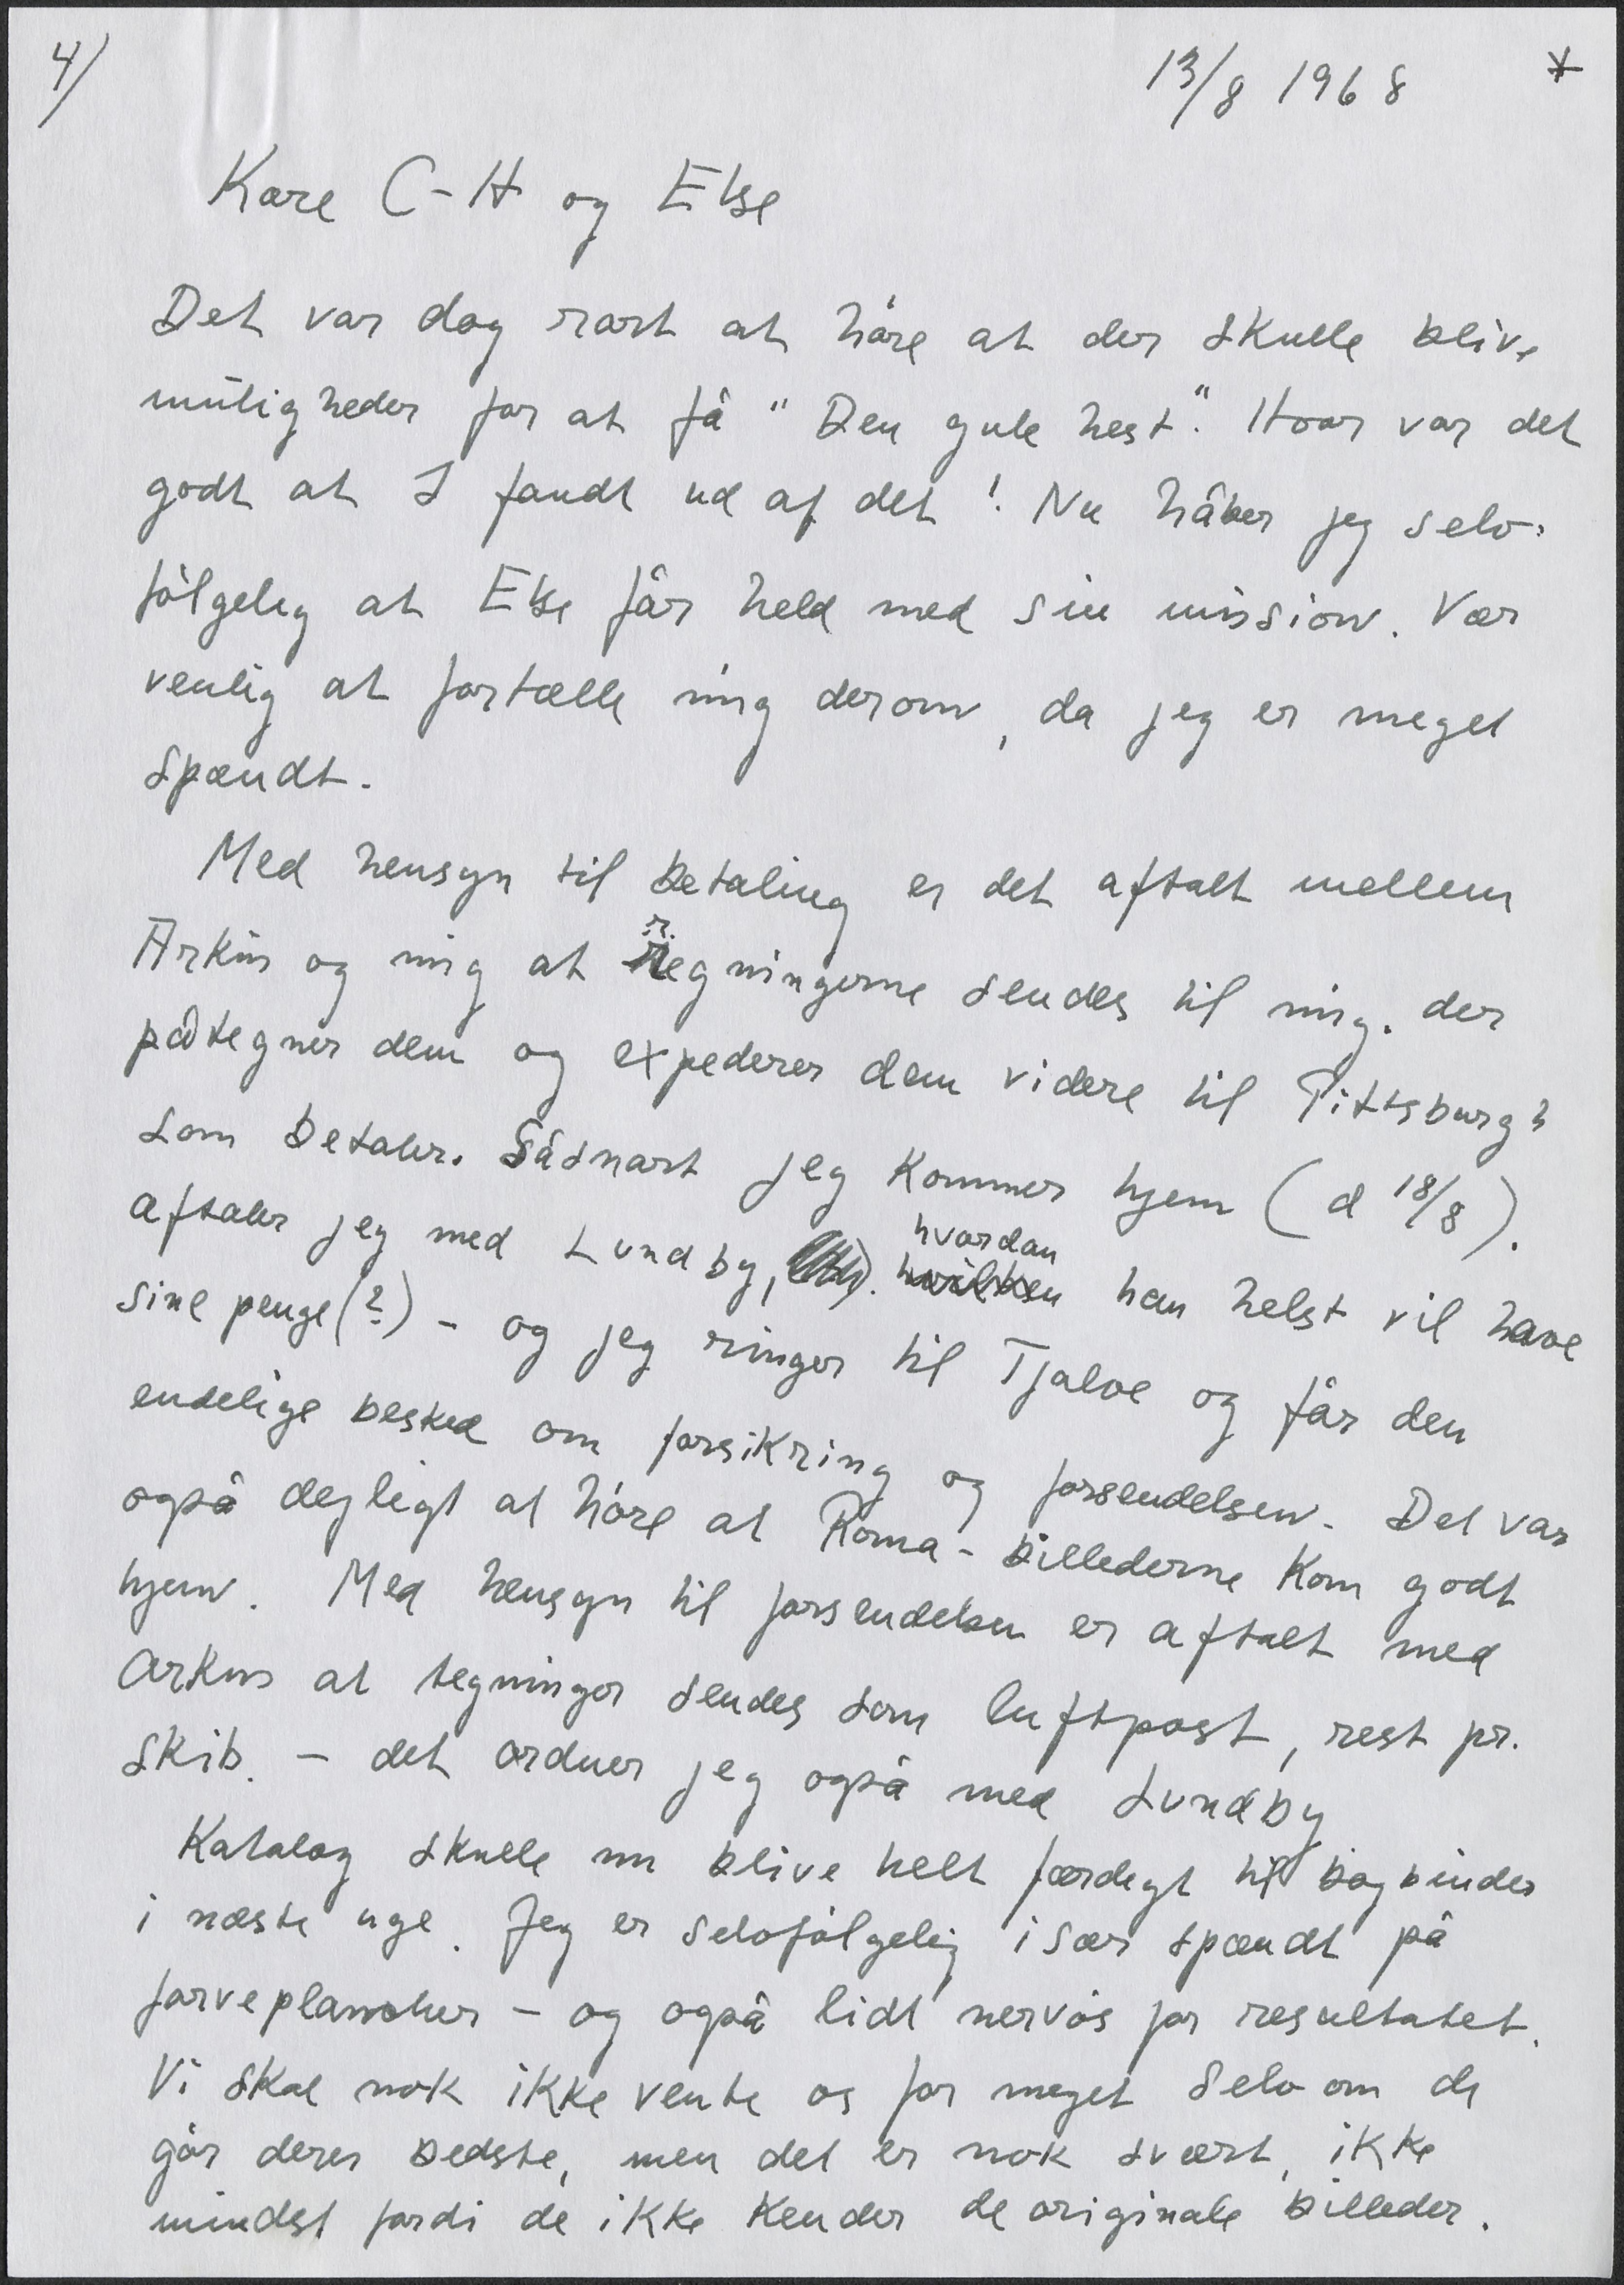 4/
13/8 1968 *
Kære C-H og Else
Det var dog rart at höre at der skulle blive
muligheder for at få "Den gule hest". Hvor var det
godt at I fandt ud af det! Nu håber jeg selv-
fölgelig at Else får held med sin mission. Vær
venlig at fortælle mig derom, da jeg er meget
spændt.
Med hensyn til betaling er det aftalt mellem
Arkus og mig at regningerne sendes til mig. der
påtegner dem og expederer dem videre til Pittsburgh
som betaler. Såsnart jeg kommer hjem (d 18/8).
aftaler jeg med Lundby, hvordan han helst vil have
sine penge (?) - og jeg ringer til Tjalve og får den
endelige besked om forsikring og forsendelsen. Det var
også dejligt at höre at Roma-billederne kom godt
hjem. Med hensyn til forsendelsen er aftalt med
Arkus at tegninger sendes som luftpost, rest pr.
skib. - det ordner jeg også med Lundby
Katalog skulle nu blive helt færdigt til bogbinder
i næste uge. Jeg er selvfölgelig især spændt på
farveplancher - og også lidt nervös for resultatet.
Vi skal nok ikke vente os for meget selv om de
gör deres bedste, men det er nok svært, ikke
mindst fordi de ikke kender de originale billeder.